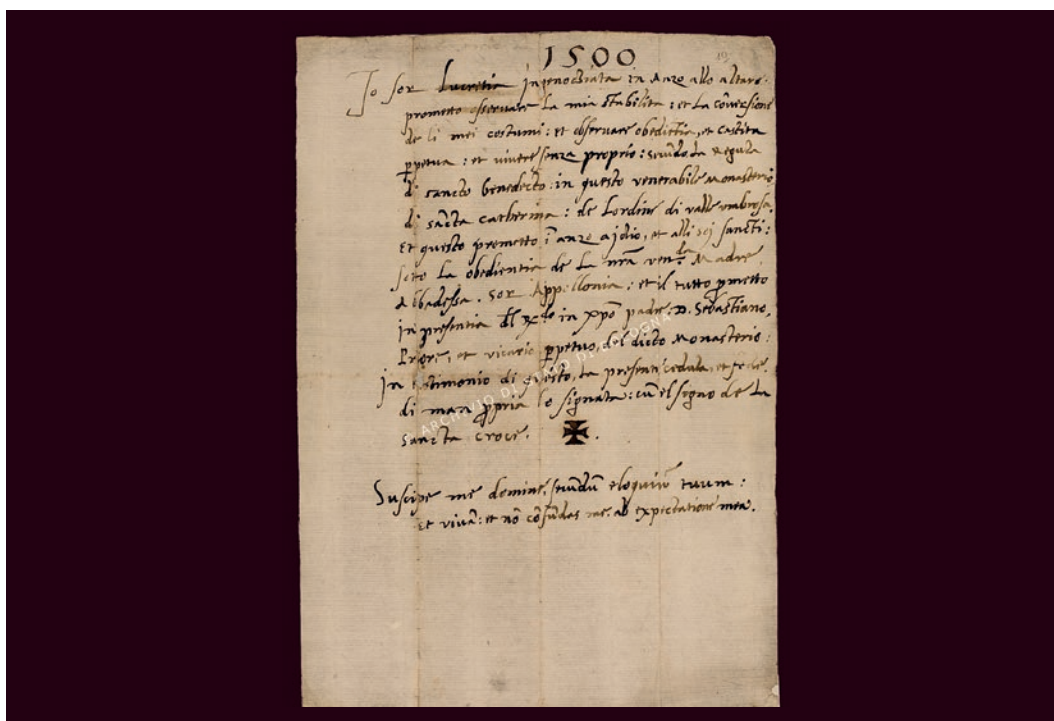 1500
Io sor Lucretia Ingenochiata in anzo allo altare.
prometto osservare la mia stabilita : et la cōversione
de li mei costumi : et observare obedietia, et castita
ꝑpetua : et vivere senza proprio : secūdo la Regula
di sancto benedecto : in questo venerabile Monasterio
di sācta catherina : de Lordine di valle umbrosa.
Et questo prometto ī anzo a jdio, et alli soi sancti :
soto la obedientia de la nrā ven.da Madre.
Abbadessa. Sor Appollonia : et il tutto ꝓmetto
in presentia dl Rdo in xpō padre. D. Sebastiano,
Priore, et vicario ꝑpetuo, del dicto Monasterio :
In testimonio di questo, la presente cedula, et fede.
di mano ꝓpria lo signata : cū el signo de la
sancta croce. ✠.
Suscipe me domine, secūdū eloquiū tuum :
Et vivā : et nō cōfundas me. ab expectatione mea.
ARCHIVIO DI STATO DI BOLOGNA